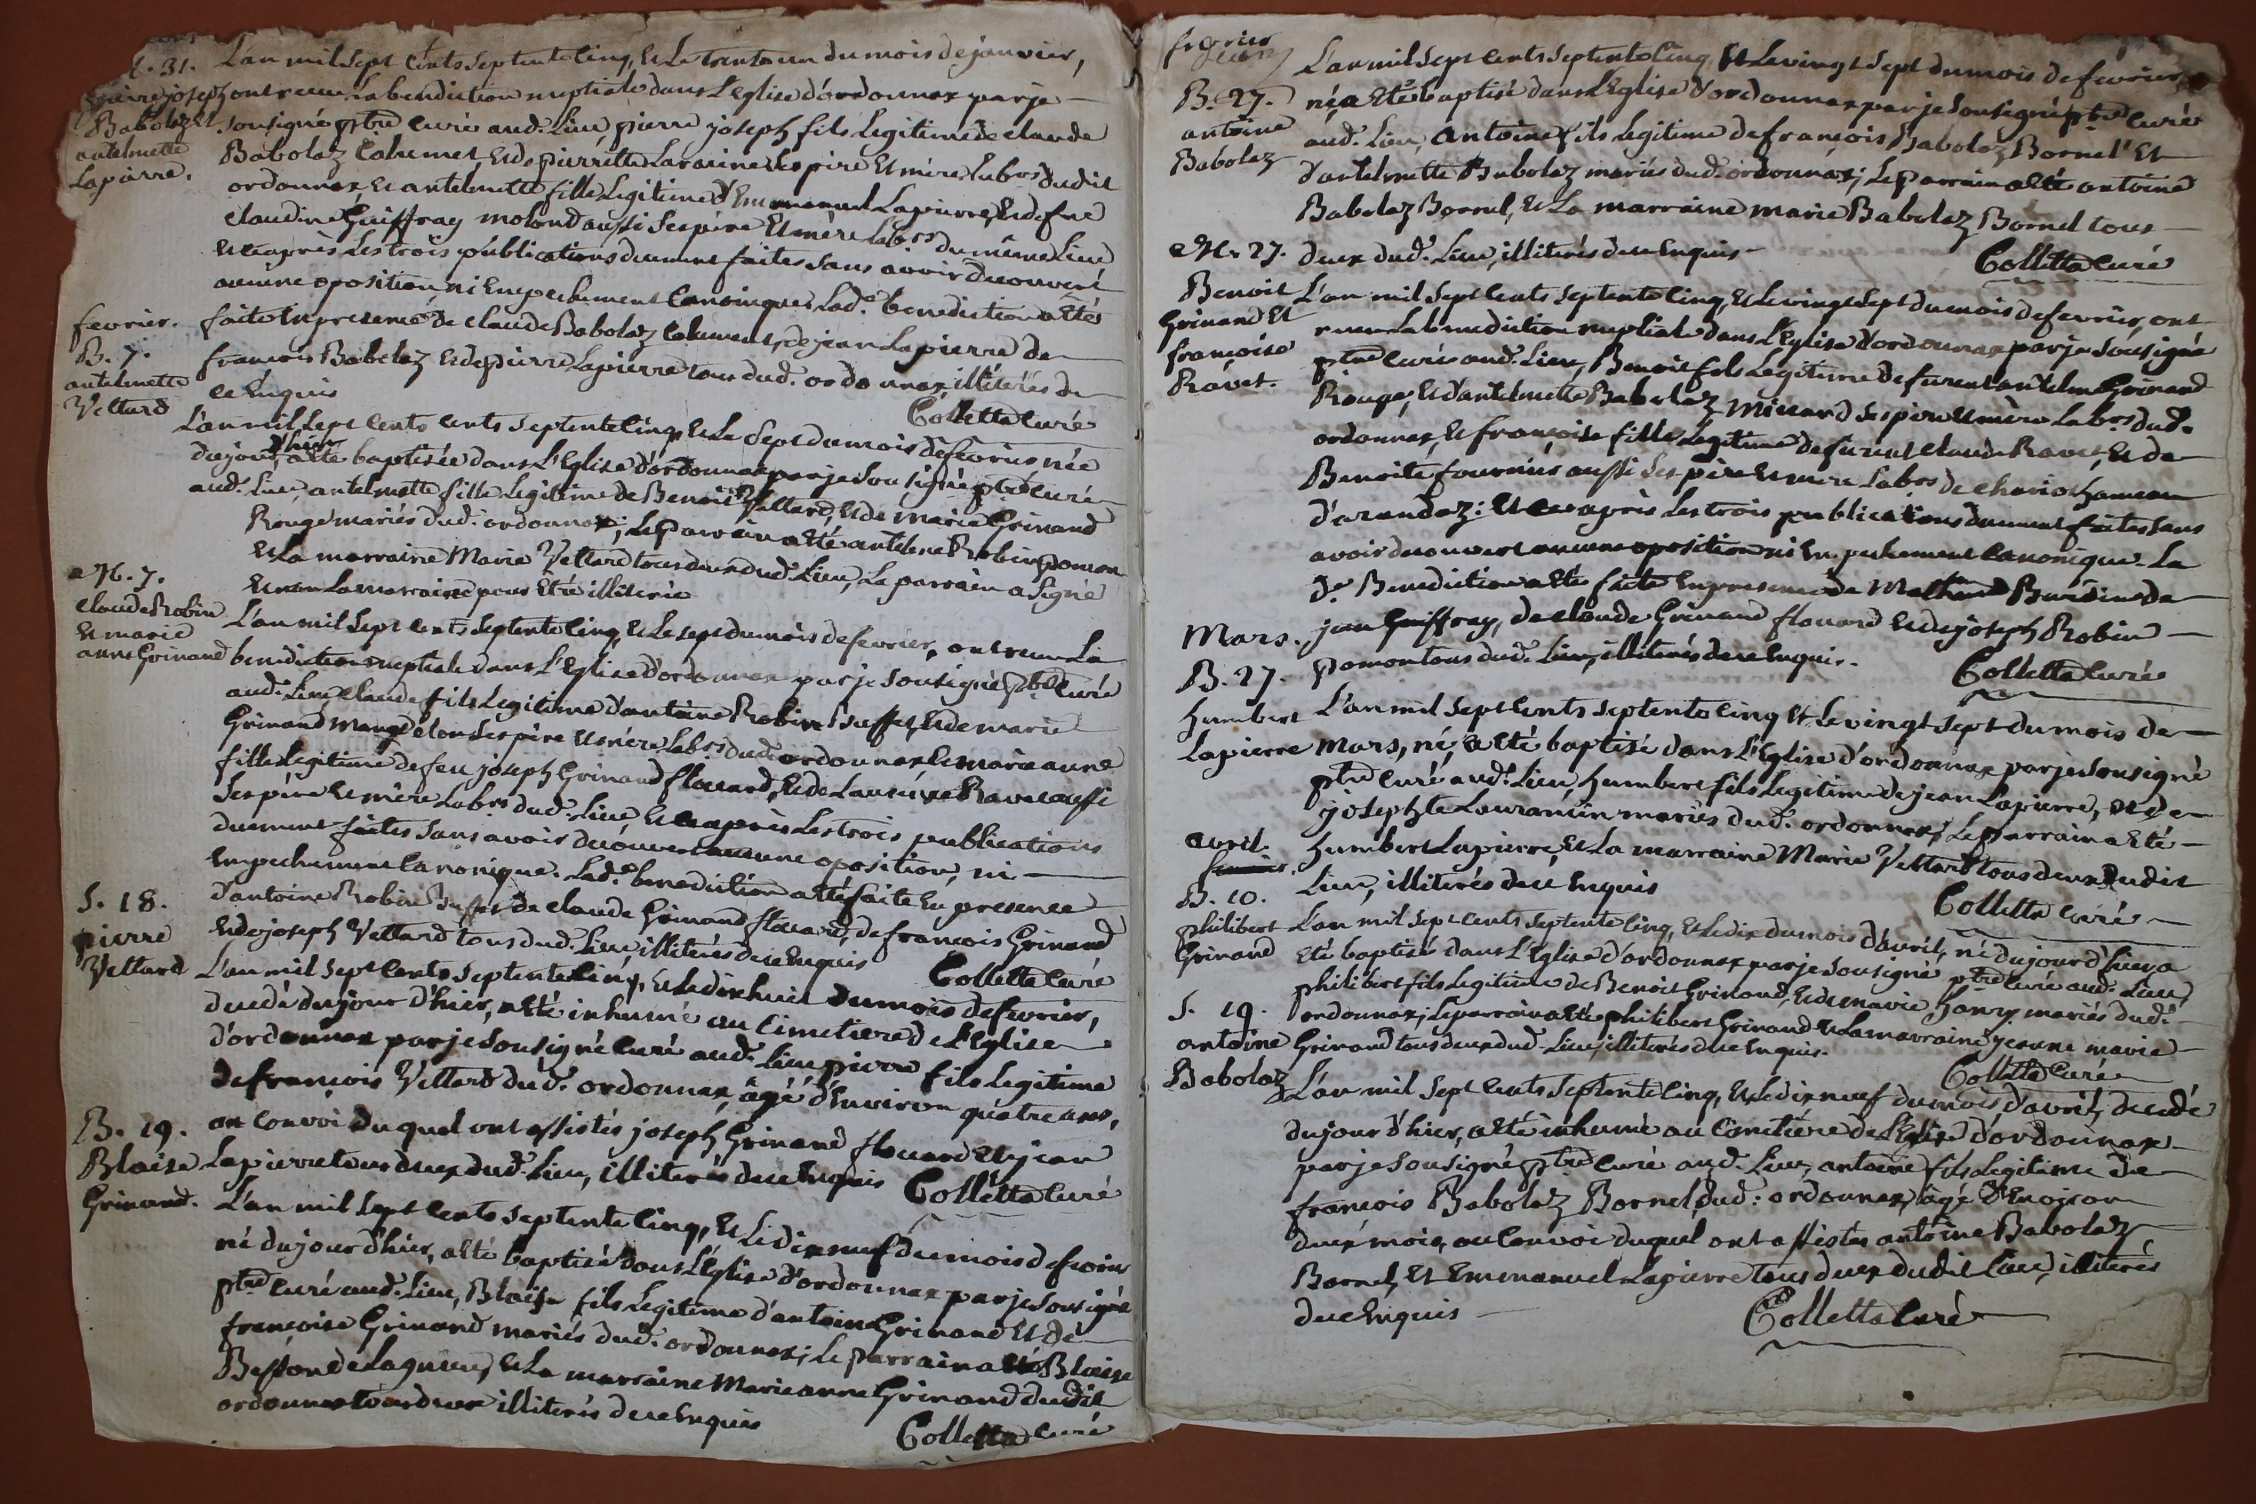 M. 31.
pierre joseph
Babolaz et
antelmette
Lapierre.
L'an mil sept cents septente cinq, et Le trente un du mois de janvier,
ont recu La benediction nuptiale dans L'Eglise d'ordonnax par je
sousigné ptre curé aud. Lieu pierre joseph fils Legitime de claude
Babolaz Calumet, et de pierrette Laraine ses pere et mere Labrs dudit
ordonnax et antelmette fille Legitime d'Emmanuel Lapierre, et de feue
claudine Guiffray molond aussi ses père et mere Labrs du même Lieu
et ce après Les trois publications duement faites sans avoir decouvert
aucune oposition, ni Empechement canoniques Lade benediction a Eté
faite En presence de claude Babolaz Calumet, de jean Lapierre de
francois Babolaz et de pierre Lapierre tous dud. ordonnax illiterés de
ce Enquis
Colletta curé
fevrier.
B. 7.
antelmette
Vettard
L'an mil sept cents cents septente cinq, et Le sept du mois de fevrier née
du jour d'hier a Eté baptisée dans L'Eglise d'ordonnax par je sousigné ptre curé
aud. Lieu, antelmette fille Legitime de Benoit Vettard, et de marie Grinand
Rouge mariés dud. ordonnax; Le parrain a Eté antelme Robin pomon
et La marraine Marie Vettard tous deux dud. Lieu, Le parrain a signé
et non La marraine pour Etre illiterée
M. 7.
claude Robin
et marie
anne Grinand
L'an mil sept cents septente cinq, et Le sept du mois de fevrier, ont recu La
benediction nuptiale dans L'Eglise d'ordonnax par je sousigné ptre curé
aud. Lieu, claude fils Legitime d'antoine Robin Buffet, et de marie
Grinand ses père et mere Labrs dud. ordonnax et marie anne
fille Legitime de feu joseph Grinand flouard, et de Ravet aussi
ses père et mère Labrs dud. Lieu, et ce après Les trois publications
duement faites sans avoir decouvert aucune oposition, ni
Empechement canonique. Lade benediction a Eté faite En presence
d'antoine Robin Buffet de claude Grinand flouard, de francois Grinand
et de joseph Vettard tous dud. Lieu, illiterés de ce Enquis
Colletta curé
S. 18.
pierre
Vettard
L'an mil sept cents septente cinq, et Le dix huit du mois de fevrier,
decedé du jour d'hier, a Eté inhumé au cimetiere de L'Eglise
d'ordonnax par je sousigné curé aud. Lieu pierre fils Legitime
de francois Vettard dud. ordonnax, âgé d'Environ quatre ans,
au convoi du quel ont assistés joseph Grinand flouard et jean
Lapierre tous deux dud. Lieu, illiterés de ce Enquis
Colletta curé
B. 19.
Blaise
Grinand.
L'an mil sept cents septente cinq, et Le dix neuf du mois de fevrier
né du jour d'hier, a Eté baptisé dans L'Eglise d'ordonnax par je sousigné
ptre curé aud. Lieu, Blaise fils Legitime d'antoine Grinand et de
francoise Grinand mariés dud. ordonnax; Le parrain a Eté Blaise
de Lagnieu, et La marraine Marie anne Grinand dudit
ordonnax tous deux illiterés de ce Enquis
Colletta curé
fevrier
B. 27.
antoine
Babolaz
L'an mil sept cents septente cinq, Et Le vingt sept du mois de fevrier
né, a Eté baptisé dans L'Eglise d'ordonnax par je sousigné ptre curé
aud. Lieu, antoine fils Legitime de francois Babolaz Bornel Et
d'antelmette Babolaz mariés dud. ordonnax; Le parrain a Eté antoine
Babolaz Bornel, et La marraine marie Babolaz Bornel tous
deux dud. Lieu, illiterés de ce Enquis
Colletta curé
M. 27.
Benoit
Grinand Et
francoise
Ravet.
L'an mil sept cents septente cinq, et Le vingt sept du mois de fevrier, ont
recu La benediction nuptiale dans L'Eglise d'ordonnax par je sousigné
ptre curé aud. Lieu, Benoit fils Legitime de furent antelme Grinand
Rouge, et d'antelmette Babolaz ses père et mère Labrs dud.
ordonnax, et francoise fille Legitime de furent claude Ravet, et de
Benoite fournier aussi ses père et mere Labrs de hameau
d'arandaz; et ce après Les trois publications duement faites sans
avoir decouvert aucune oposition ni Empechement canonique. La
de Benediction a Eté faite En presence de de
jean Guiffray, de claude Grinand flouard et de joseph Robin
pomon tous dud. Lieu, illiterés de ce Enquis.
Colletta curé
Mars.
B. 27.
humbert
Lapierre
L'an mil sept cents septente cinq et Le vingt sept du mois de
Mars, né, a Eté baptisé dans L'Eglise d'ordonnax par je sousigné
ptre curé aud. Lieu, humbert fils Legitime de jean Lapierre, et de
josephte Laurantin mariés dud. ordonnax; Le parrain a Eté
humbert Lapierre, et La marraine Marie Vettard tous deux dudit
Lieu, illiterés de ce Enquis
Colletta curé
avril.
B. 10.
philibert
Grinand
L'an mil sept cents septente cinq, et Le dix du mois d'avril, né du jour d'hier a
Eté baptisé dans L'Eglise d'ordonnax par je sousigné ptre curé aud. Lieu,
philibert fils Legitime de Benoit Grinand, et de marie hanry mariés dud.
ordonnax; Le parrain a Eté philibert Grinand et La marraine jeanne marie
Grinand tous deux dud. Lieu, illiterés de ce Enquis.
Colletta curé
S. 19.
antoine
Babolaz
L'an mil sept cents septente cinq, et Le dix neuf du mois d'avril, decedé
du jour d'hier, a Eté inhumé au cimetière de L'Eglise d'ordonnax
par je sousigné ptre curé aud. Lieu, antoine fils Legitime de
francois Babolaz Bornel, dud: ordonnax, âgé d'Environ
deux mois, au convoi duquel ont assistés antoine Babolaz
Bornel, Et Emmanuel Lapierre tous deux dudit Lieu, illiterés
de ce Enquis
Colletta curé